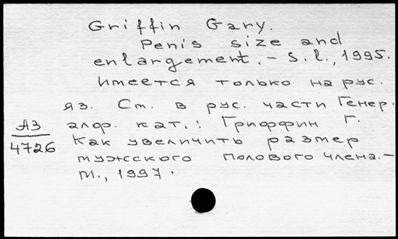 Griffin Gary.
Penis size and
enlargement. - S.l., 1995.
Имеется только на рус.
яз. См. в рус. части Генер.
алф. кат.: Гриффин Г.
АЗ
4726
Как увеличить размер
мужского полового члена. -
М., 1997.